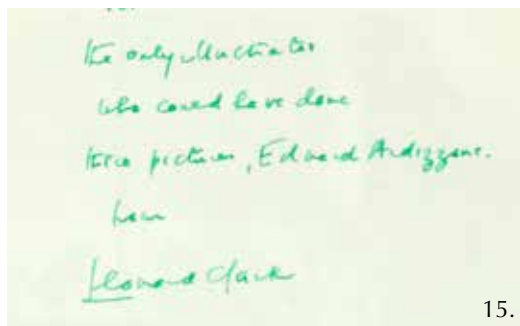 the only illustrator
who could have done
these pictures, Edward Ardizzone.
from
Leonard Clark
15.